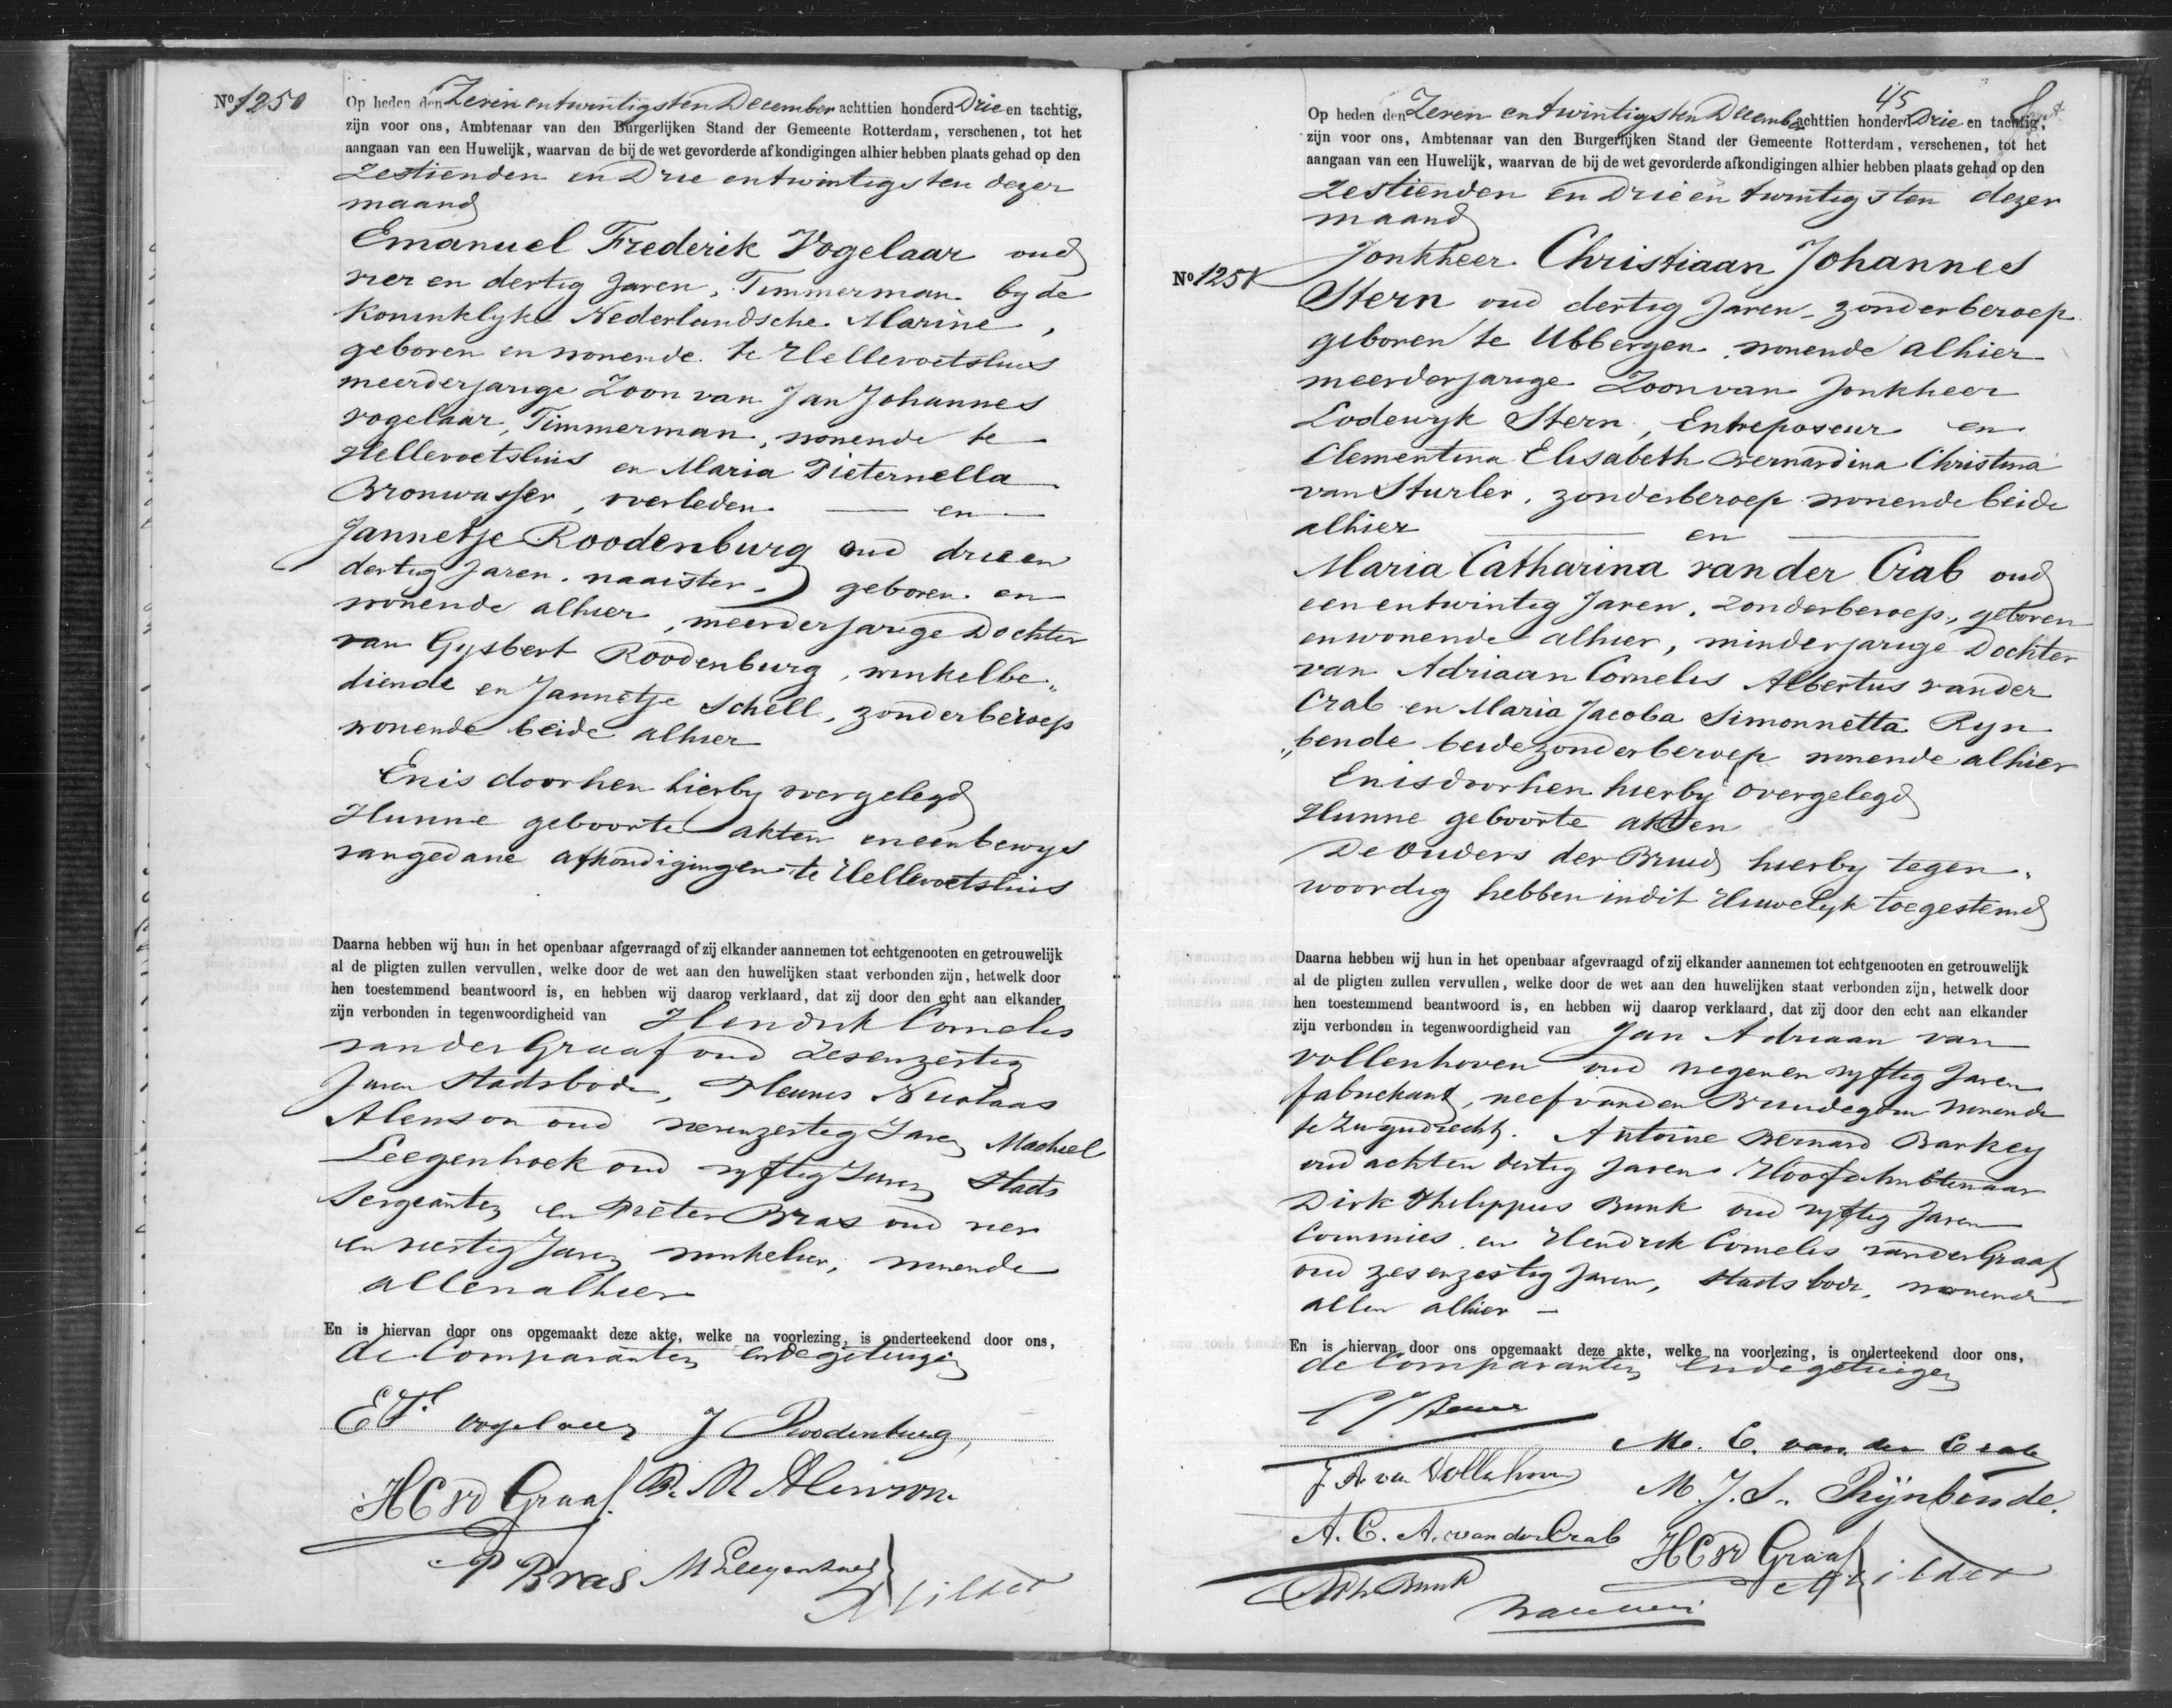 No 1250
Op heden den Zeven en twintigsten December achttien honderd Drie en tachtig,
zijn voor ons, Ambtenaar van den Burgerlijken Stand der Gemeente Rotterdam, verschenen, tot het
aangaan van een Huwelijk, waarvan de bij de wet gevorderde afkondigingen alhier hebben plaats gehad op den
Zestienden en Drie en twintigsten dezer
maand
Emanuel Frederik Vogelaar oud
vier en dertig Jaren, Timmerman by de
Koninklyke Nederlandsche Marine,
geboren en wonende te Hellevoetsluis
meerderjarige Zoon van Jan Johannes
Vogelaar, Timmerman, wonende te
Hellevoetsluis en Maria Pieternella
Bronwasser, overleden. — en —
Jannetje Roodenburg oud drie en
dertig Jaren, naaister, geboren en
wonende alhier, meerderjarige Dochter
van Gysbert Roodenburg, winkelbe„
diende en Jannetje Schell, zonder beroep
wonende beide alhier
En is door hen hierby overgelegd
Hunne geboorte akten en een bewys
van gedane afkondigingen te Hellevoetsluis
Daarna hebben wij hun in het openbaar afgevraagd of zij elkander aannemen tot echtgenooten en getrouwelijk
al de pligten zullen vervullen, welke door de wet aan den huwelijken staat verbonden zijn, hetwelk door
hen toestemmend beantwoord is, en hebben wij daarop verklaard, dat zij door den echt aan elkander
zijn verbonden in tegenwoordigheid van Hendrik Cornelis
van der Graaf oud Zesenzestig
Jaren Stadsbode, Nicolaas
Alenson oud zestig Jaren, Machiel
Leegenhoek oud vyftig Jaren Stads
Sergeanten en Pieter Bras oud vier
en veertig Jaren winkelier, wonende
allen alhier
En is hiervan door ons opgemaakt deze akte, welke na voorlezing, is onderteekend door ons,
de Comparanten en de getuigen
E F Vogelaar J Roodenburg,
HC vd Graaf. N. Alenson
P Bras M Leegenhoek
45
Op heden den Zeven en twintigsten December achttien honderd Drie en tachtig,
zijn voor ons, Ambtenaar van den Burgerlijken Stand der Gemeente Rotterdam, verschenen, tot het
aangaan van een Huwelijk, waarvan de bij de wet gevorderde afkondigingen alhier hebben plaats gehad op den
Zestienden en Drie en twintigsten dezer
maand
No 1251
Jonkheer Christiaan Johannes
Stern oud dertig Jaren, zonder beroep
geboren te Ubbergen, wonende alhier
meerderjarige Zoon van Jonkheer
Lodewyk Stern, Entreposeur en
Clementina Elisabeth Bernardina Christina
van Sturler, zonder beroep wonende beide
alhier — en —
Maria Catharina van der Crab oud
een en twintig Jaren, zonder beroep, geboren
en wonende alhier, minderjarige Dochter
van Adriaan Cornelis Albertus van der
Crab en Maria Jacoba Simonnetta Ryn
„bende beide zonder beroep wonende alhier
En is door hen hierby overgelegd
Hunne geboorte akten
De Ouders der Bruid hierby tegen„
woordig hebben in dit Huwelyk toegestemd
Daarna hebben wij hun in het openbaar afgevraagd of zij elkander aannemen tot echtgenooten en getrouwelijk
al de pligten zullen vervullen, welke door de wet aan den huwelijken staat verbonden zijn, hetwelk door
hen toestemmend beantwoord is, en hebben wij daarop verklaard, dat zij door den echt aan elkander
zijn verbonden in tegenwoordigheid van Jan Adriaan van
Vollenhoven oud negen en vyftig Jaren
fabriekant, neef van den Bruidegom wonende
te Zwyndrecht. Antoine Bernard Barkey
oud acht en dertig Jaren Hoofdambtenaar
Dirk Philippus Bunk oud vyftig Jaren
Commies en Hendrik Cornelis van der Graaf
oud zesenzestig Jaren, Stadsbode, wonende
allen alhier —
En is hiervan door ons opgemaakt deze akte, welke na voorlezing, is onderteekend door ons,
de Comparanten en de getuigen
C J Stern
M. C. van der Crab
J A van Vollenhoven M. J. S. Rijnbende.
A. C. A. van der Crab HC vd Graaf
D Ph Bunk